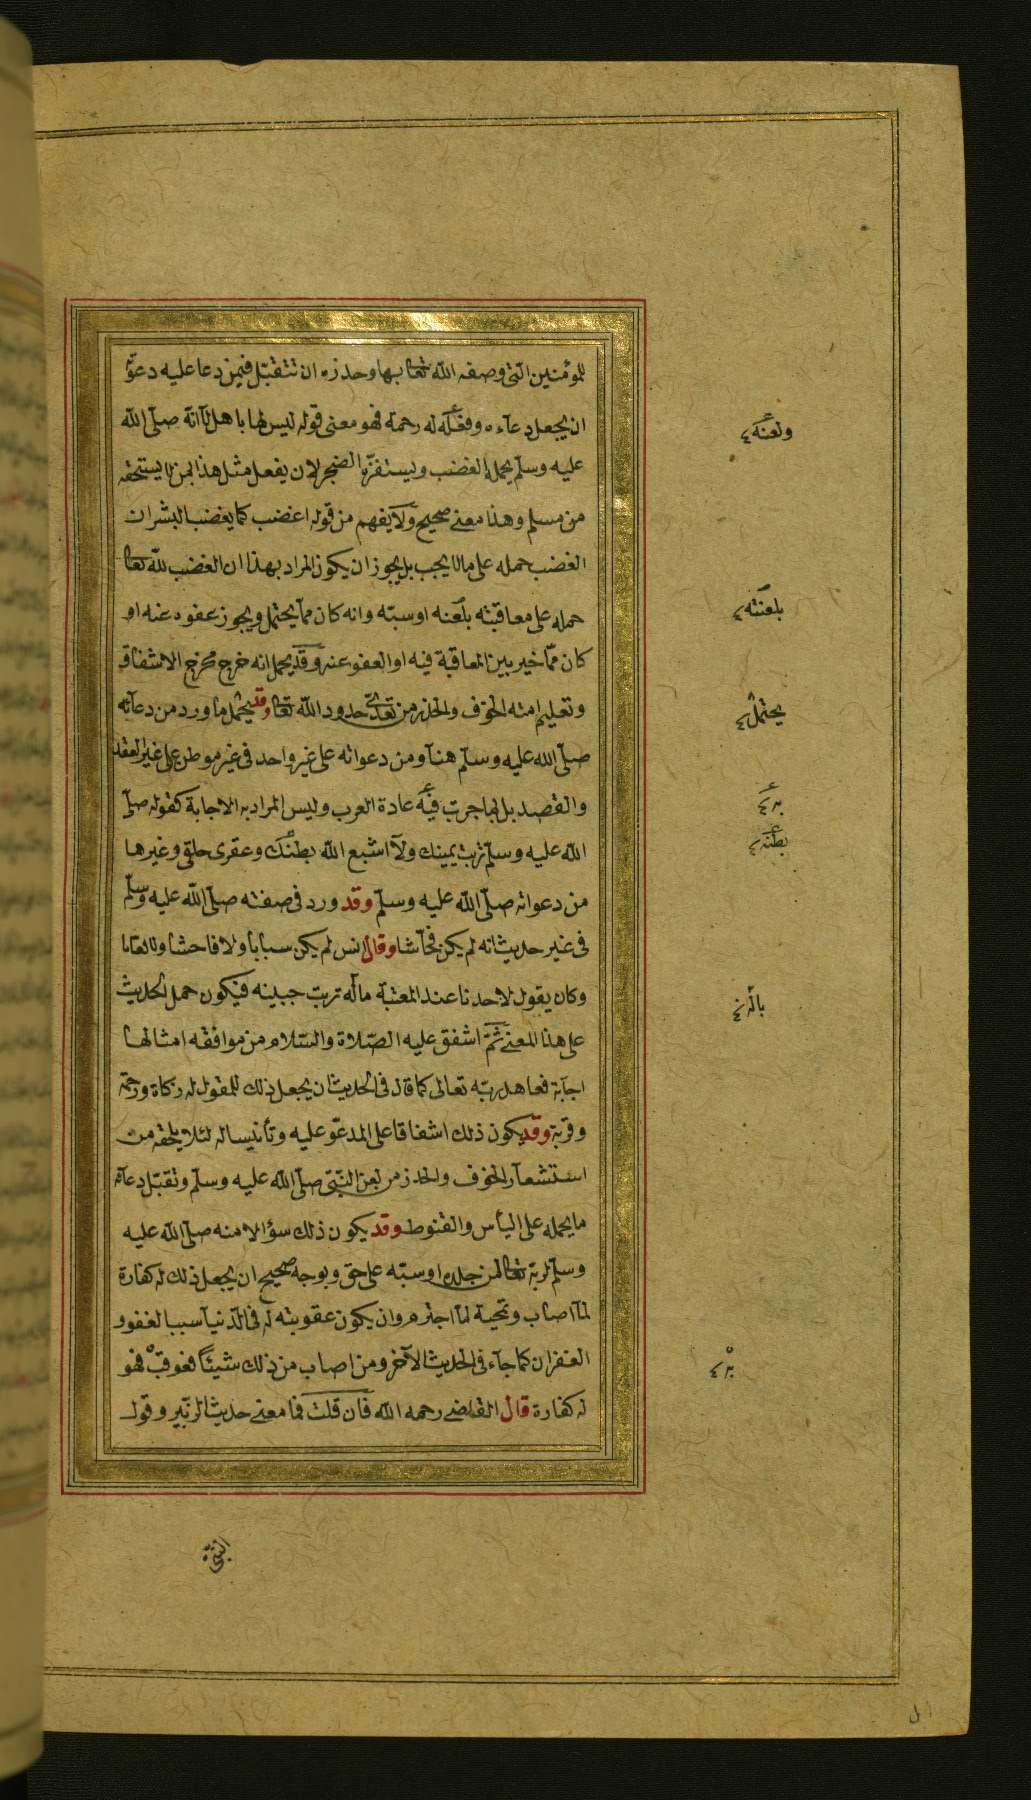 للمؤمنين التى وصفه الله تعا بها وحذره ان تتقبل فيمن دعا عليه دعوته
ان يجعل دعآءه وفعله له رحمة فهو معنى قوله ليس لها باهل لآ انه صلى الله
عليه وسلم يحمله الغضب ويستفزه الضجر لان يفعل مثل هذا بمن لا يستحقه
من مسلم وهذا معنى صحيح ولا يفهم من قوله اغضب كما يغضب البشر ان
الغضب حمله على ما لا يجب بل يجوز ان يكون المراد بهذا ان الغضب لله تعا
حمله على معاقبته بلعنه او سبه وانه كان مما يحتمل ويجوز عفوه عنه او
كان مما خير بين المعاقبة فيه او العفو عنه وقد يحمل انه خرج مخرج الاشفاق
وتعليم امته الخوف والحذر من تعدى حدود الله تعا وقد يحمل ما ورد من دعآئه
صلى الله عليه وسلم هنا ومن دعواته على غير واحد فى غير موطن على غير العقد
والقصد بل بما جرت فيه عادة العرب وليس المراد به الاجابة كقوله صلى
الله عليه وسلم تربت يمينك ولآ اشبع الله بطنك وعقرى حلقى وغيرها
من دعواته صلى الله عليه وسلم وقد ورد فى صفته صلى الله عليه وسلم
فى غير حديث انه لم يكن فحآشا وقال انس لم يكن سبابا ولا فاحشا ولا لعانا
وكان يقول لاحدنا عند المعتبة ماله ترب جبينه فيكون حمل الحديث
على هذا المعنى ثم اشفق عليه الصلاة والسلام من موافقة امثالها
اجآبة فعاهد ربه تعالى كما قال فى الحديث ان يجعل ذلك للمقول له زكاة ورحمة
وقربة وقد يكون ذلك اشفاقا على المدعو عليه وتأنيسا له لئلا يلحقه من
استشعآر الخوف والحذر من لعن النبى صلى الله عليه وسلم وتقبل دعآئه
ما يحمله على اليأس والقنوط وقد يكون ذلك سؤالا منه صلى الله عليه
وسلم لربه تعا لمن جلده او سبه على حق وبوجه صحيح ان يجعل ذلك له كفارة
لمآ اصاب وتمحية لمآ اجترم وان يكون عقوبته له فى الدنيآ سببا لعفو و
الغفران كما جآء فى الحديث الآخر ومن اصاب من ذلك شيئا فعوقب فهو
له كفارة قال القاضى رحمه الله فان قلت فما معنى حديث الزبير وقول
ولعنه
بلعنته
يحتمل
به
بطنه
باله
به
النبى